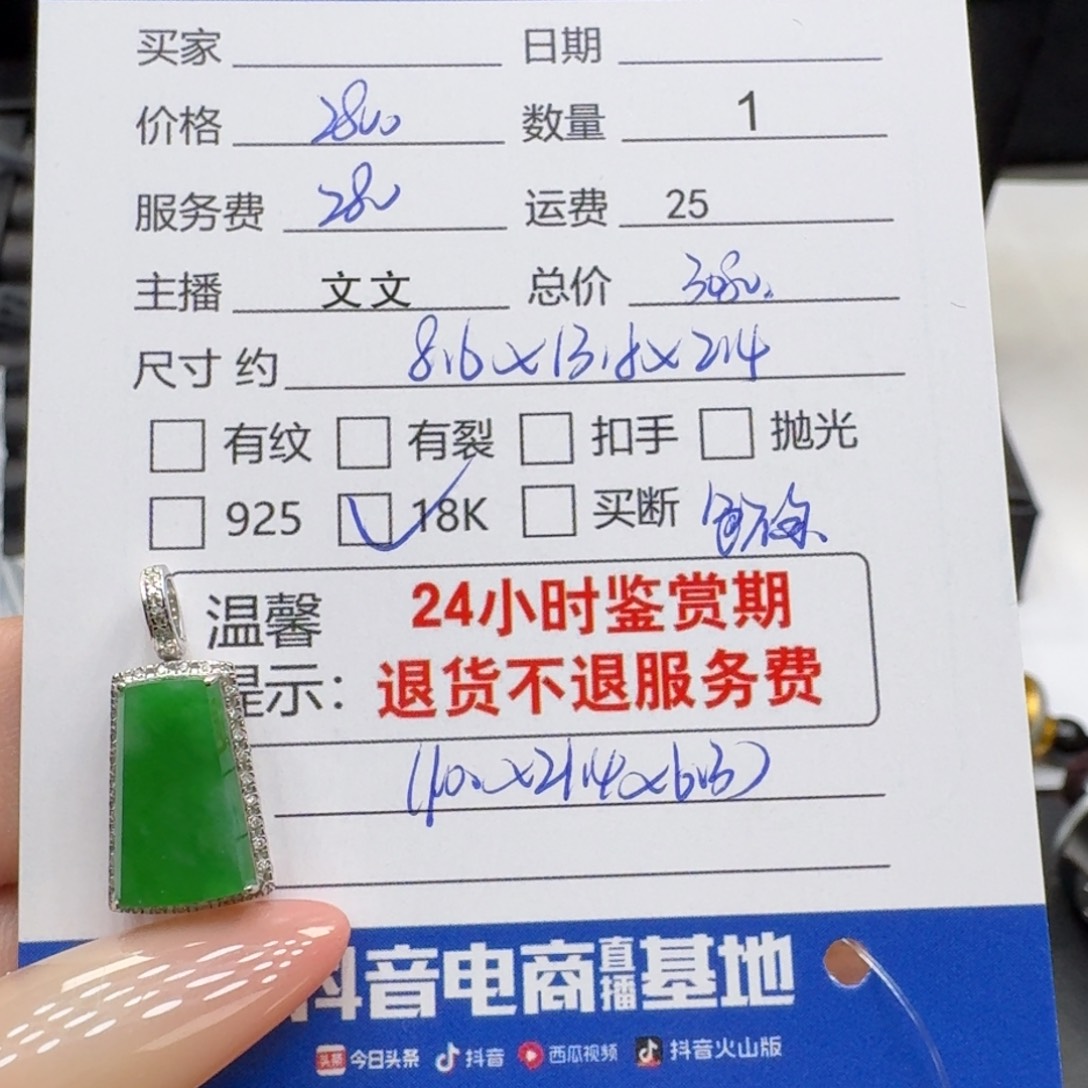 买家 日期
价格 2800 数量 1
服务费 280 运费 25
主播 文文 总价 3080.
尺寸 约 8.6×13.8×2.4
有纹 有裂 扣手 抛光
925 18K 买断
温馨 24小时鉴赏期
提示： 退货不退服务费
抖音电商直播基地
头条 今日头条 抖音 西瓜视频 抖音火山版